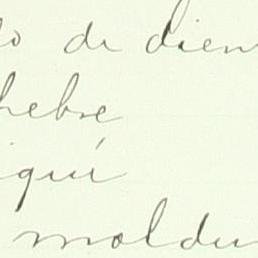 do de dien
hebre
iquí
moldu